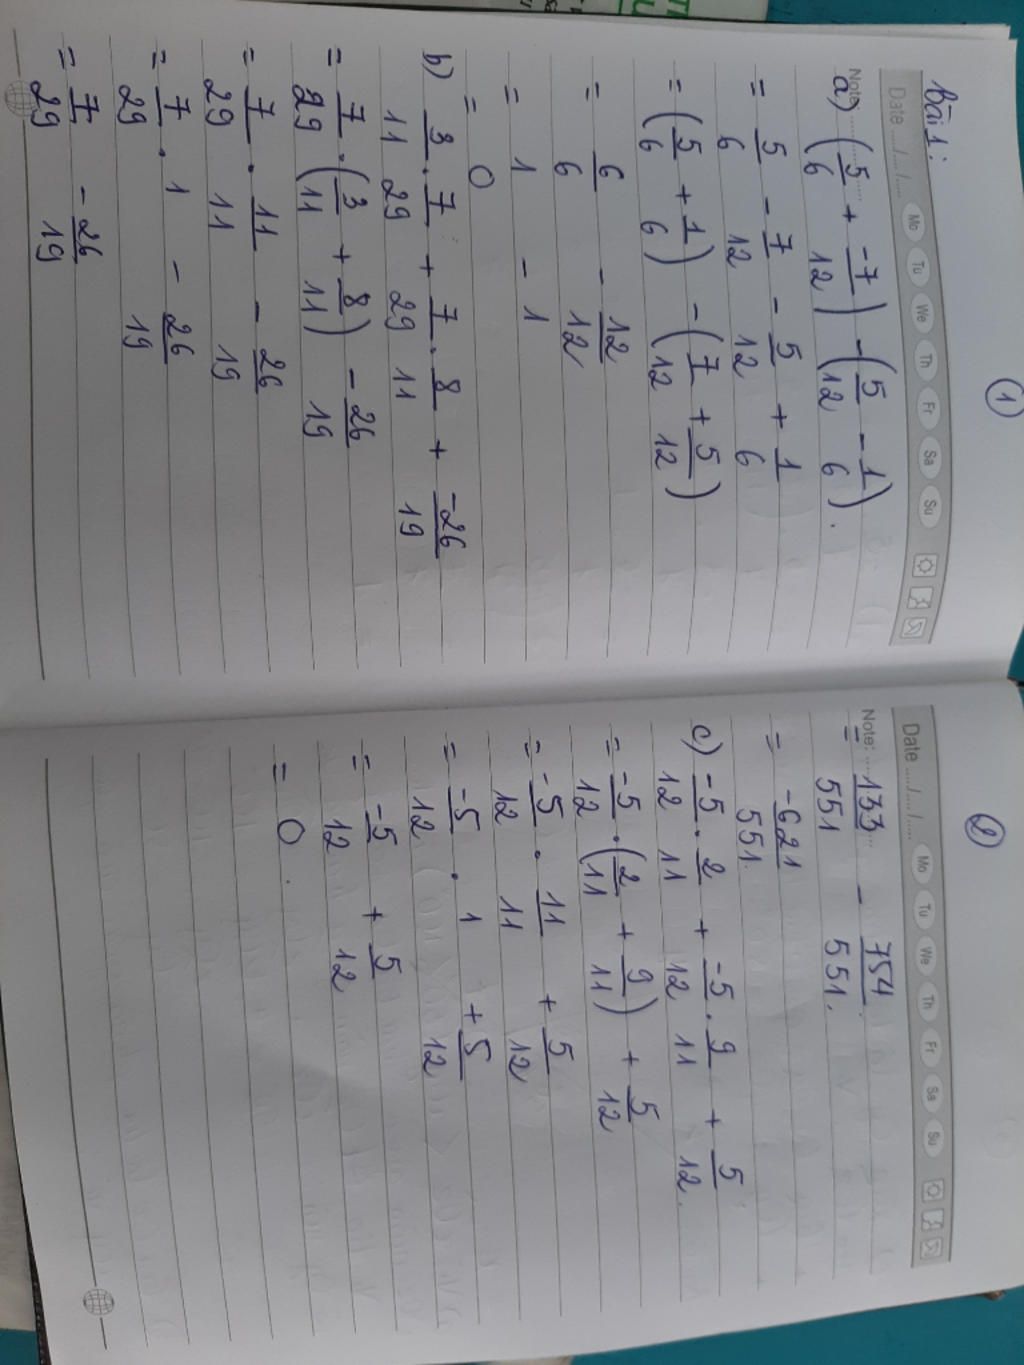 ①
Date ..../..../.... Mo Tu We Th Fr Sa Su
bài 1:
Note:
a) (5/6 + -7/12) - (5/12 - 1/6).
= 5/6 - 7/12 - 5/12 + 1/6
= (5/6 + 1/6) - (7/12 + 5/12)
= 6/6 - 12/12
= 1 - 1
= 0
b) 3/11 . 7/29 + 7/29 . 8/11 + -26/19
= 7/29 . (3/11 + 8/11) - 26/19
= 7/29 . 11/11 - 26/19
= 7/29 . 1 - 26/19
= 7/29 - 26/19
②
Date ..../..../.... Mo Tu We Th Fr Sa Su
Note:
= 133/551 - 754/551.
= -621/551.
c) -5/12 . 2/11 + -5/12 . 9/11 + 5/12.
= -5/12 . (2/11 + 9/11) + 5/12
= -5/12 . 11/11 + 5/12
= -5/12 . 1 + 5/12
= -5/12 + 5/12
= 0.